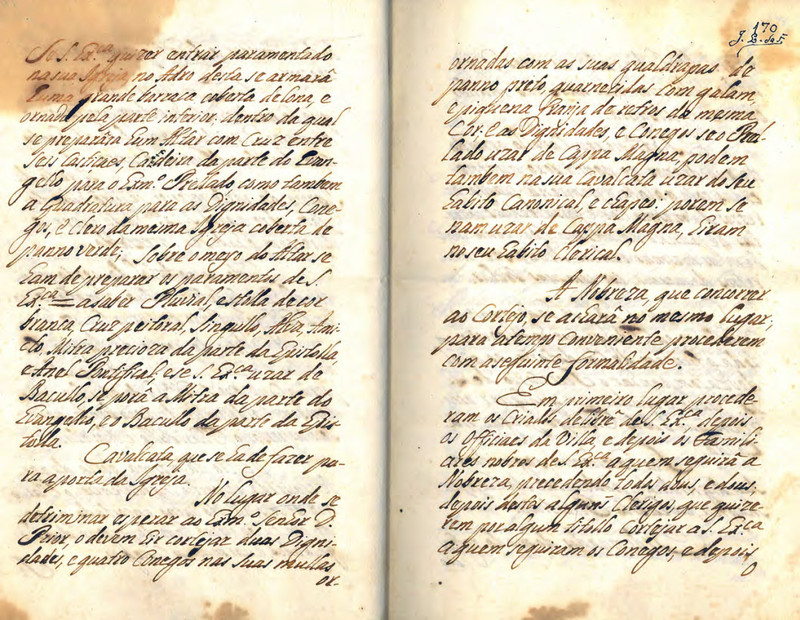 Se S. Ex.ca quizer entrar paramentado
na sua Igreja, no Adro desta se armarâ
huma grande barraca coberta de lona, e
ornada pela parte inferior, dentro da qual
se prepararâ hum Altar com Cruz entre
seis Castiçaes, Cadeira da parte do Evan-
gelho para o Exm.o Prellado, como tambem
a Quadratura para as Dignidades, Cone-
gos, e Clero da mesma Igreja coberta de
panno verde; Sobre o meyo do Altar se
ham de preparar os paramentos de S.
Ex.ca a saber Pluvial, estola de cor
branca, Cruz peitoral, Singullo, Alva, Ami-
cto, Mitra precioza da parte da Epistolla
e Anel Pontifical, e se S. Ex.ca uzar de
Bacullo, se porâ a Mitra da parte do
Evangelho, e o Bacullo da parte da Epis-
tolla.
Cavalcata que se ha de fazer pa-
ra a porta da Igreja.
No lugar onde se
detriminar esperar ao Exm.o Senhor D.
Prior, o devem hir cortejar duas Digni-
dades, e quatro Conegos nas suas mullas
or-
170
ornadas com as suas gualdrapas de
panno preto, guarnecidas com galam,
e piquena franja de retros da mesma
Cor: E as Dignidades, e Conegos se o Prel-
lado uzar de Cappa Magna, podem
tambem na sua Cavalcata uzar do seu
habito Canonical, e crasso: porem se
nam uzar de Cappa Magna, hiram
no seu habito Clerical.
A Nobreza, que concorrer
ao Cortejo, se acharâ no mesmo lugar,
para a tempo conveniente procederem
com a seguinte formalidade.
Em primeiro lugar procede-
ram os Criados de Librê de S. Ex.ca, depois
os Officiaes da Villa, e depois os Famili-
ares nobres de S. Ex.ca a quem seguirâ a
Nobreza, precedendo todos dous, e dous,
depois destes alguns Clerigos, que quize-
rem por algum titollo cortejar a S. Ex.ca
a quem seguiram os Conegos, e depois
o